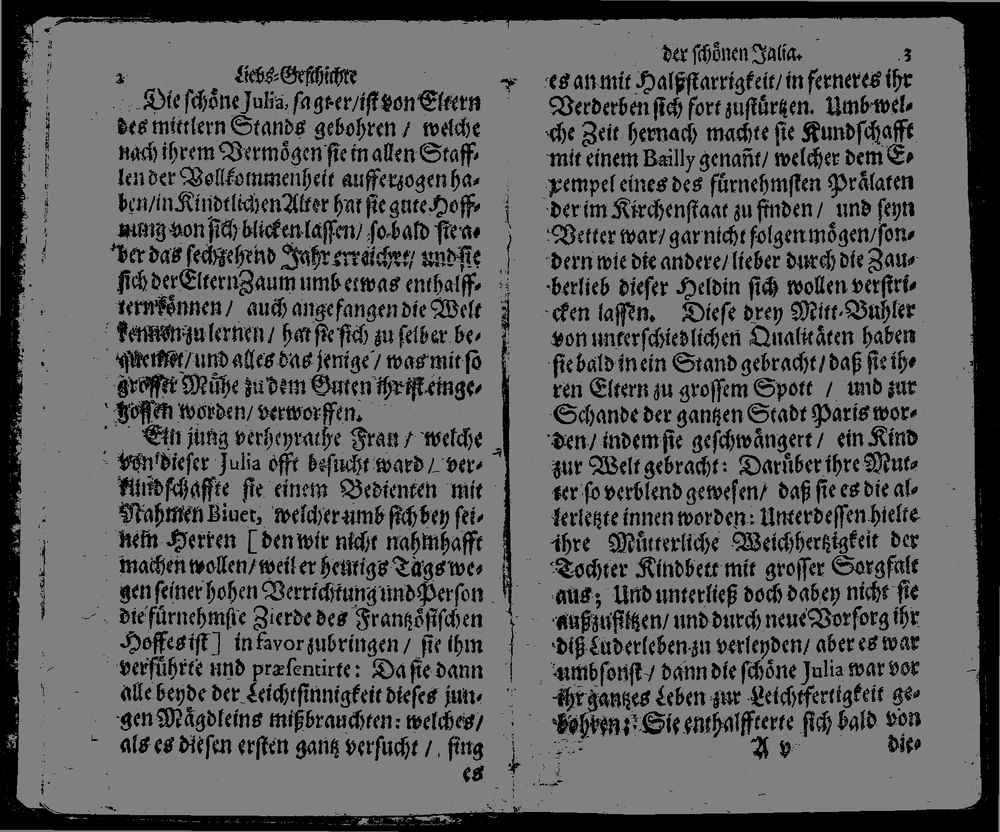 2 Liebs-Geschichte
Die schöne Julia, sagt er/ ist von Eltern
des mittlern Stands gebohren / welche
nach ihrem Vermögen sie in allen Staff-
len der Vollkommenheit aufferzogen ha-
ben/ in Kindtlichen Alter hat sie gute Hoff-
nung von sich blicken lassen/ so bald sie a-
ber das sechzehend Jahr erreichet/ und sie
sich der Eltern Zaum umb etwas enthalff-
tern können / auch angefangen die Welt
kennen zu lernen / hat sie sich zu selber be-
quemet/ und alles das jenige / was mit so
grosser Mühe zu dem Guten ihr ist einge-
gossen worden/ verworffen.
Ein jung verheyrathe Frau / welche
von dieser Julia offt besucht ward / ver-
kundschaffte sie einem Bedienten mit
Nahmen Biuet, welcher umb sich bey sei-
nem Herren [ den wir nicht nahmhafft
machen wollen/ weil er heutigs Tags we-
gen seiner hohen Verrichtung und Person
die fürnehmste Zierde des Frantzösischen
Hoffes ist ] in favor zubringen / sie ihm
verführte und præsentirte: Da sie dann
alle beyde der Leichtsinnigkeit dieses jun-
gen Mägdleins mißbrauchten: welches/
als es diesen ersten gantz versucht / fing
es
der schönen Jalia. 3
es an mit Halßstarrigkeit/ in ferneres ihr
Verderben sich fort zustürtzen. Umb wel-
che Zeit hernach machte sie Kundschafft
mit einem Bailly genañt/ welcher dem E-
xempel eines des fürnehmsten Prälaten
der im Kirchenstaat zu finden / und seyn
Vetter war/ gar nicht folgen mögen/ son-
dern wie die andere/ lieber durch die Zau-
berlieb dieser Heldin sich wollen verstri-
cken lassen. Diese drey Mitt-Buhler
von unterschiedlichen Qualitäten haben
sie bald in ein Stand gebracht/ daß sie ih-
ren Eltern zu grossem Spott / und zur
Schande der gantzen Stadt Paris wor-
den/ indem sie geschwängert / ein Kind
zur Welt gebracht: Darüber ihre Mut-
ter so verblend gewesen/ daß sie es die al-
lerletzte innen worden: Unterdessen hielte
ihre Mütterliche Weichhertzigkeit der
Tochter Kindbett mit grosser Sorgfalt
aus; Und unterließ doch dabey nicht sie
außzufiltzen/ und durch neue Vorsorg ihr
diß Luderleben zu verleyden/ aber es war
umbsonst / dann die schöne Julia war vor
ihr gantzes Leben zur Leichtfertigkeit ge-
bohren: Sie enthalffterte sich bald von
A v die-